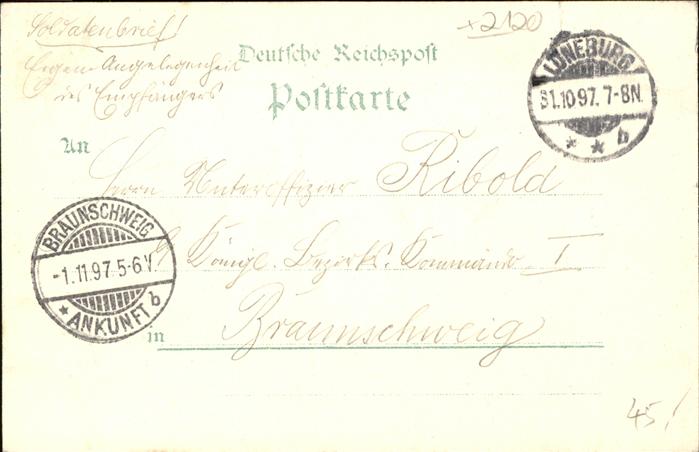 Soldatenbrief!
Eigene Angelegenheit
des Empfängers
x2120
Deutsche Reichspost
Postkarte
LÜNEBURG
31.10 97. 7-8N.
* * b
An
Herrn Unteroffizier Ribold
Königl. Bezirks. Kommando I
BRAUNSCHWEIG
-1.11.97. 5-6 V.
* ANKUNFT b
in Braunschweig
45!